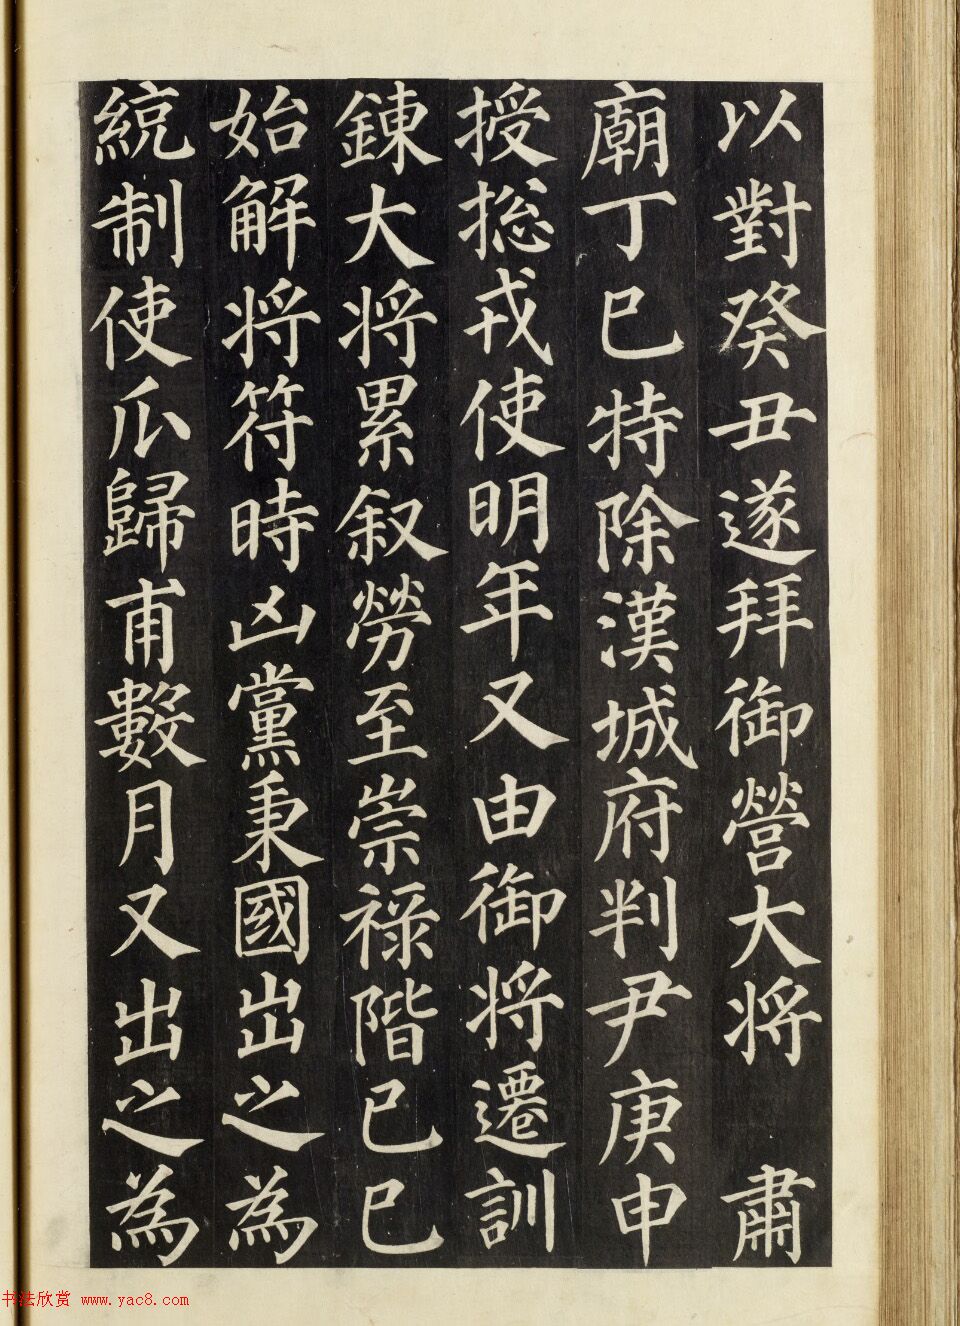 以對癸丑遂拜御營大將 肅
廟丁巳特除漢城府判尹庚申
授捴戎使明年又由御將遷訓
鍊大將累叙勞至崇祿階己巳
始解將符時凶黨秉國出之為
統制使瓜歸甫數月又出之為
书法欣赏 www.yac8.com